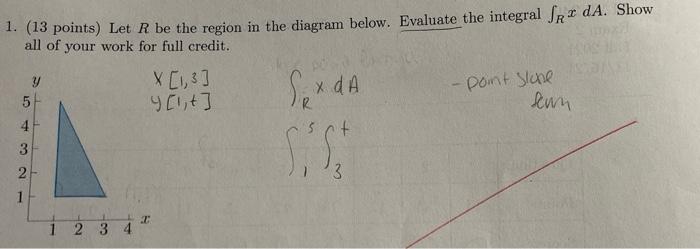 1. (13 points) Let R be the region in the diagram below. Evaluate the integral ∫_R x dA. Show
all of your work for full credit.
y
5
4
3
2
1
1 2 3 4 x
X [1,3]
y [1,t]
∫_R x dA
∫_1^5 ∫_3^t
- point slope
form